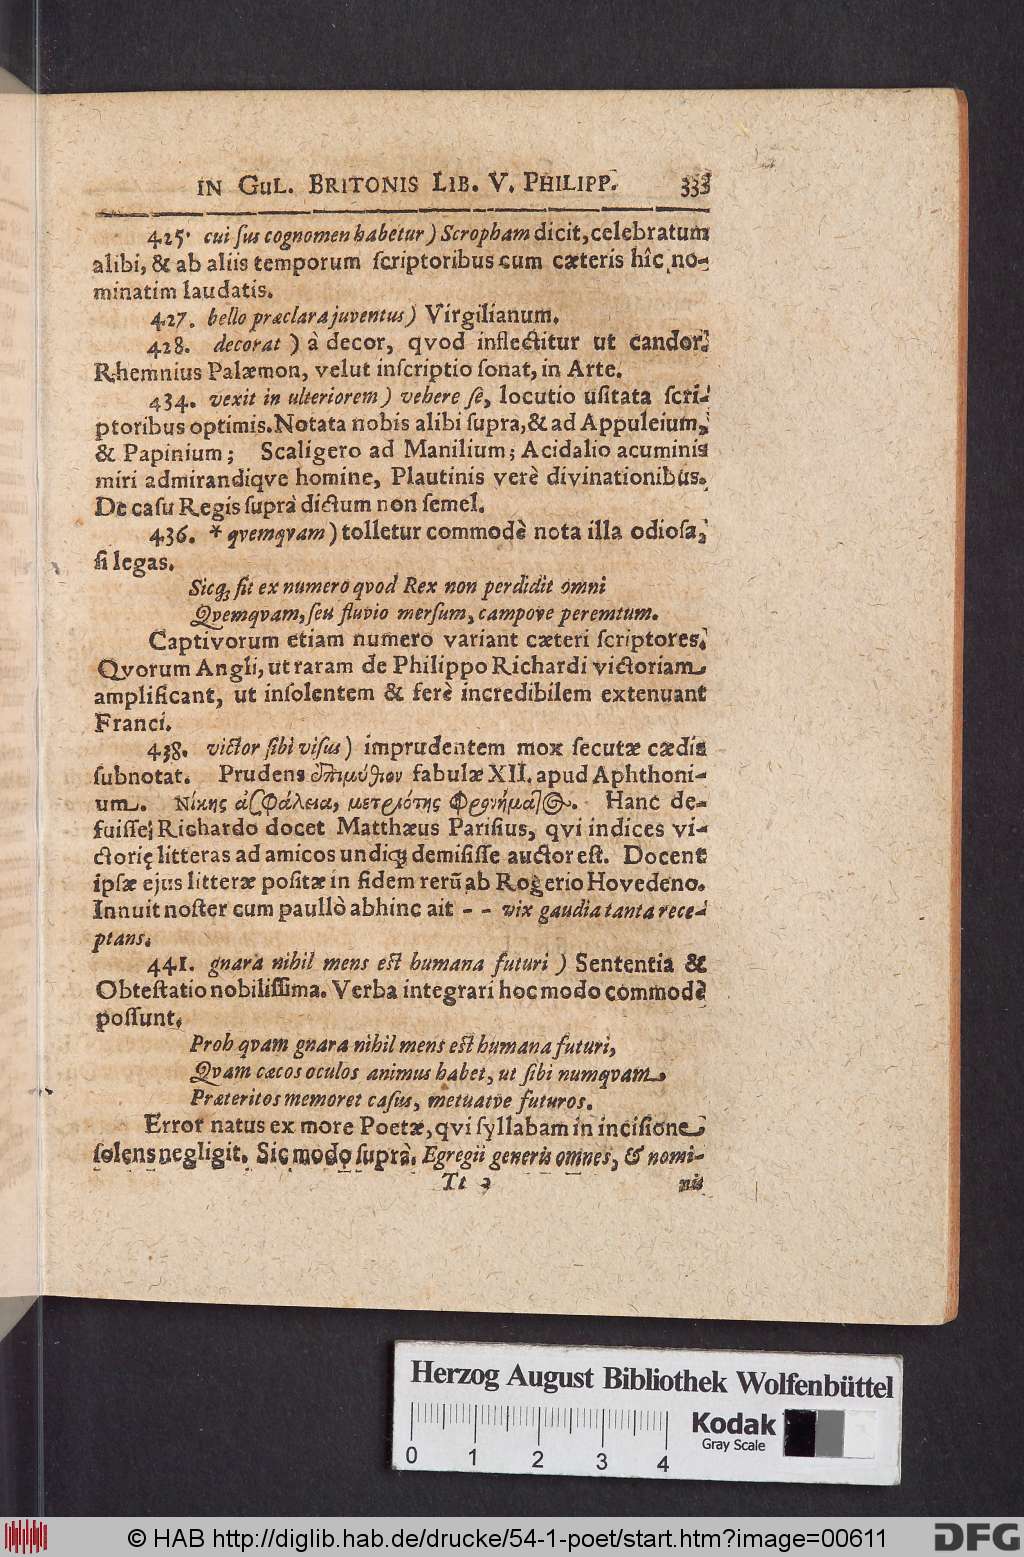 IN GuL. BRITONIS LIB. V. PHILIPP. 333
425. cui ſus cognomen habetur) Scropham dicit, celebratum
alibi, & ab aliis temporum ſcriptoribus cum cæteris hîc no-
minatim laudatis.
427. bello præclara juventus) Virgilianum.
428. decorat) à decor, qvod inflectitur ut candor.
Rhemnius Palæmon, velut inſcriptio ſonat, in Arte.
434. vexit in ulteriorem) vehere ſe, locutio uſitata ſcri-
ptoribus optimis. Notata nobis alibi ſupra, & ad Appuleium,
& Papinium; Scaligero ad Manilium; Acidalio acuminis
miri admirandiqve homine, Plautinis verè divinationibus.
De caſu Regis ſuprà dictum non ſemel.
436. * qvemqvam) tolletur commodè nota illa odioſa,
ſi legas.
Sicq; ſit ex numero qvod Rex non perdidit omni
Qvemqvam, ſeu fluvio merſum, campove peremtum.
Captivorum etiam numero variant cæteri ſcriptores.
Qvorum Angli, ut raram de Philippo Richardi victoriam
amplificant, ut inſolentem & ferè incredibilem extenuant
Franci.
438. victor ſibi viſus) imprudentem mox ſecutæ cædis
ſubnotat. Prudens ἐπιμύθιον fabulæ XII. apud Aphthoni-
um. Νίκης ἀσφάλεια, μετριότης φρονήματος. Hanc de-
fuiſſe Richardo docet Matthæus Pariſius, qvi indices vi-
ctorię litteras ad amicos undiq; demiſiſſe auctor eſt. Docent
ipſæ ejus litteræ poſitæ in fidem rerũ ab Rogerio Hovedeno.
Innuit noſter cum paullò abhinc ait - - vix gaudia tanta rece-
ptans.
441. gnara nihil mens eſt humana futuri) Sententia &
Obteſtatio nobiliſſima. Verba integrari hoc modo commodè
poſſunt.
Proh qvam gnara nihil mens eſt humana futuri,
Qvam cæcos oculos animus habet, ut ſibi numqvam
Præteritos memoret caſus, metuatve futuros.
Error natus ex more Poetæ, qvi ſyllabam in inciſione
ſolens negligit. Sic modo ſuprà. Egregii generis omnes, & nomi-
Tt 3 nis
Herzog August Bibliothek Wolfenbüttel
0 1 2 3 4
Kodak
Gray Scale
© HAB http://diglib.hab.de/drucke/54-1-poet/start.htm?image=00611
DFG